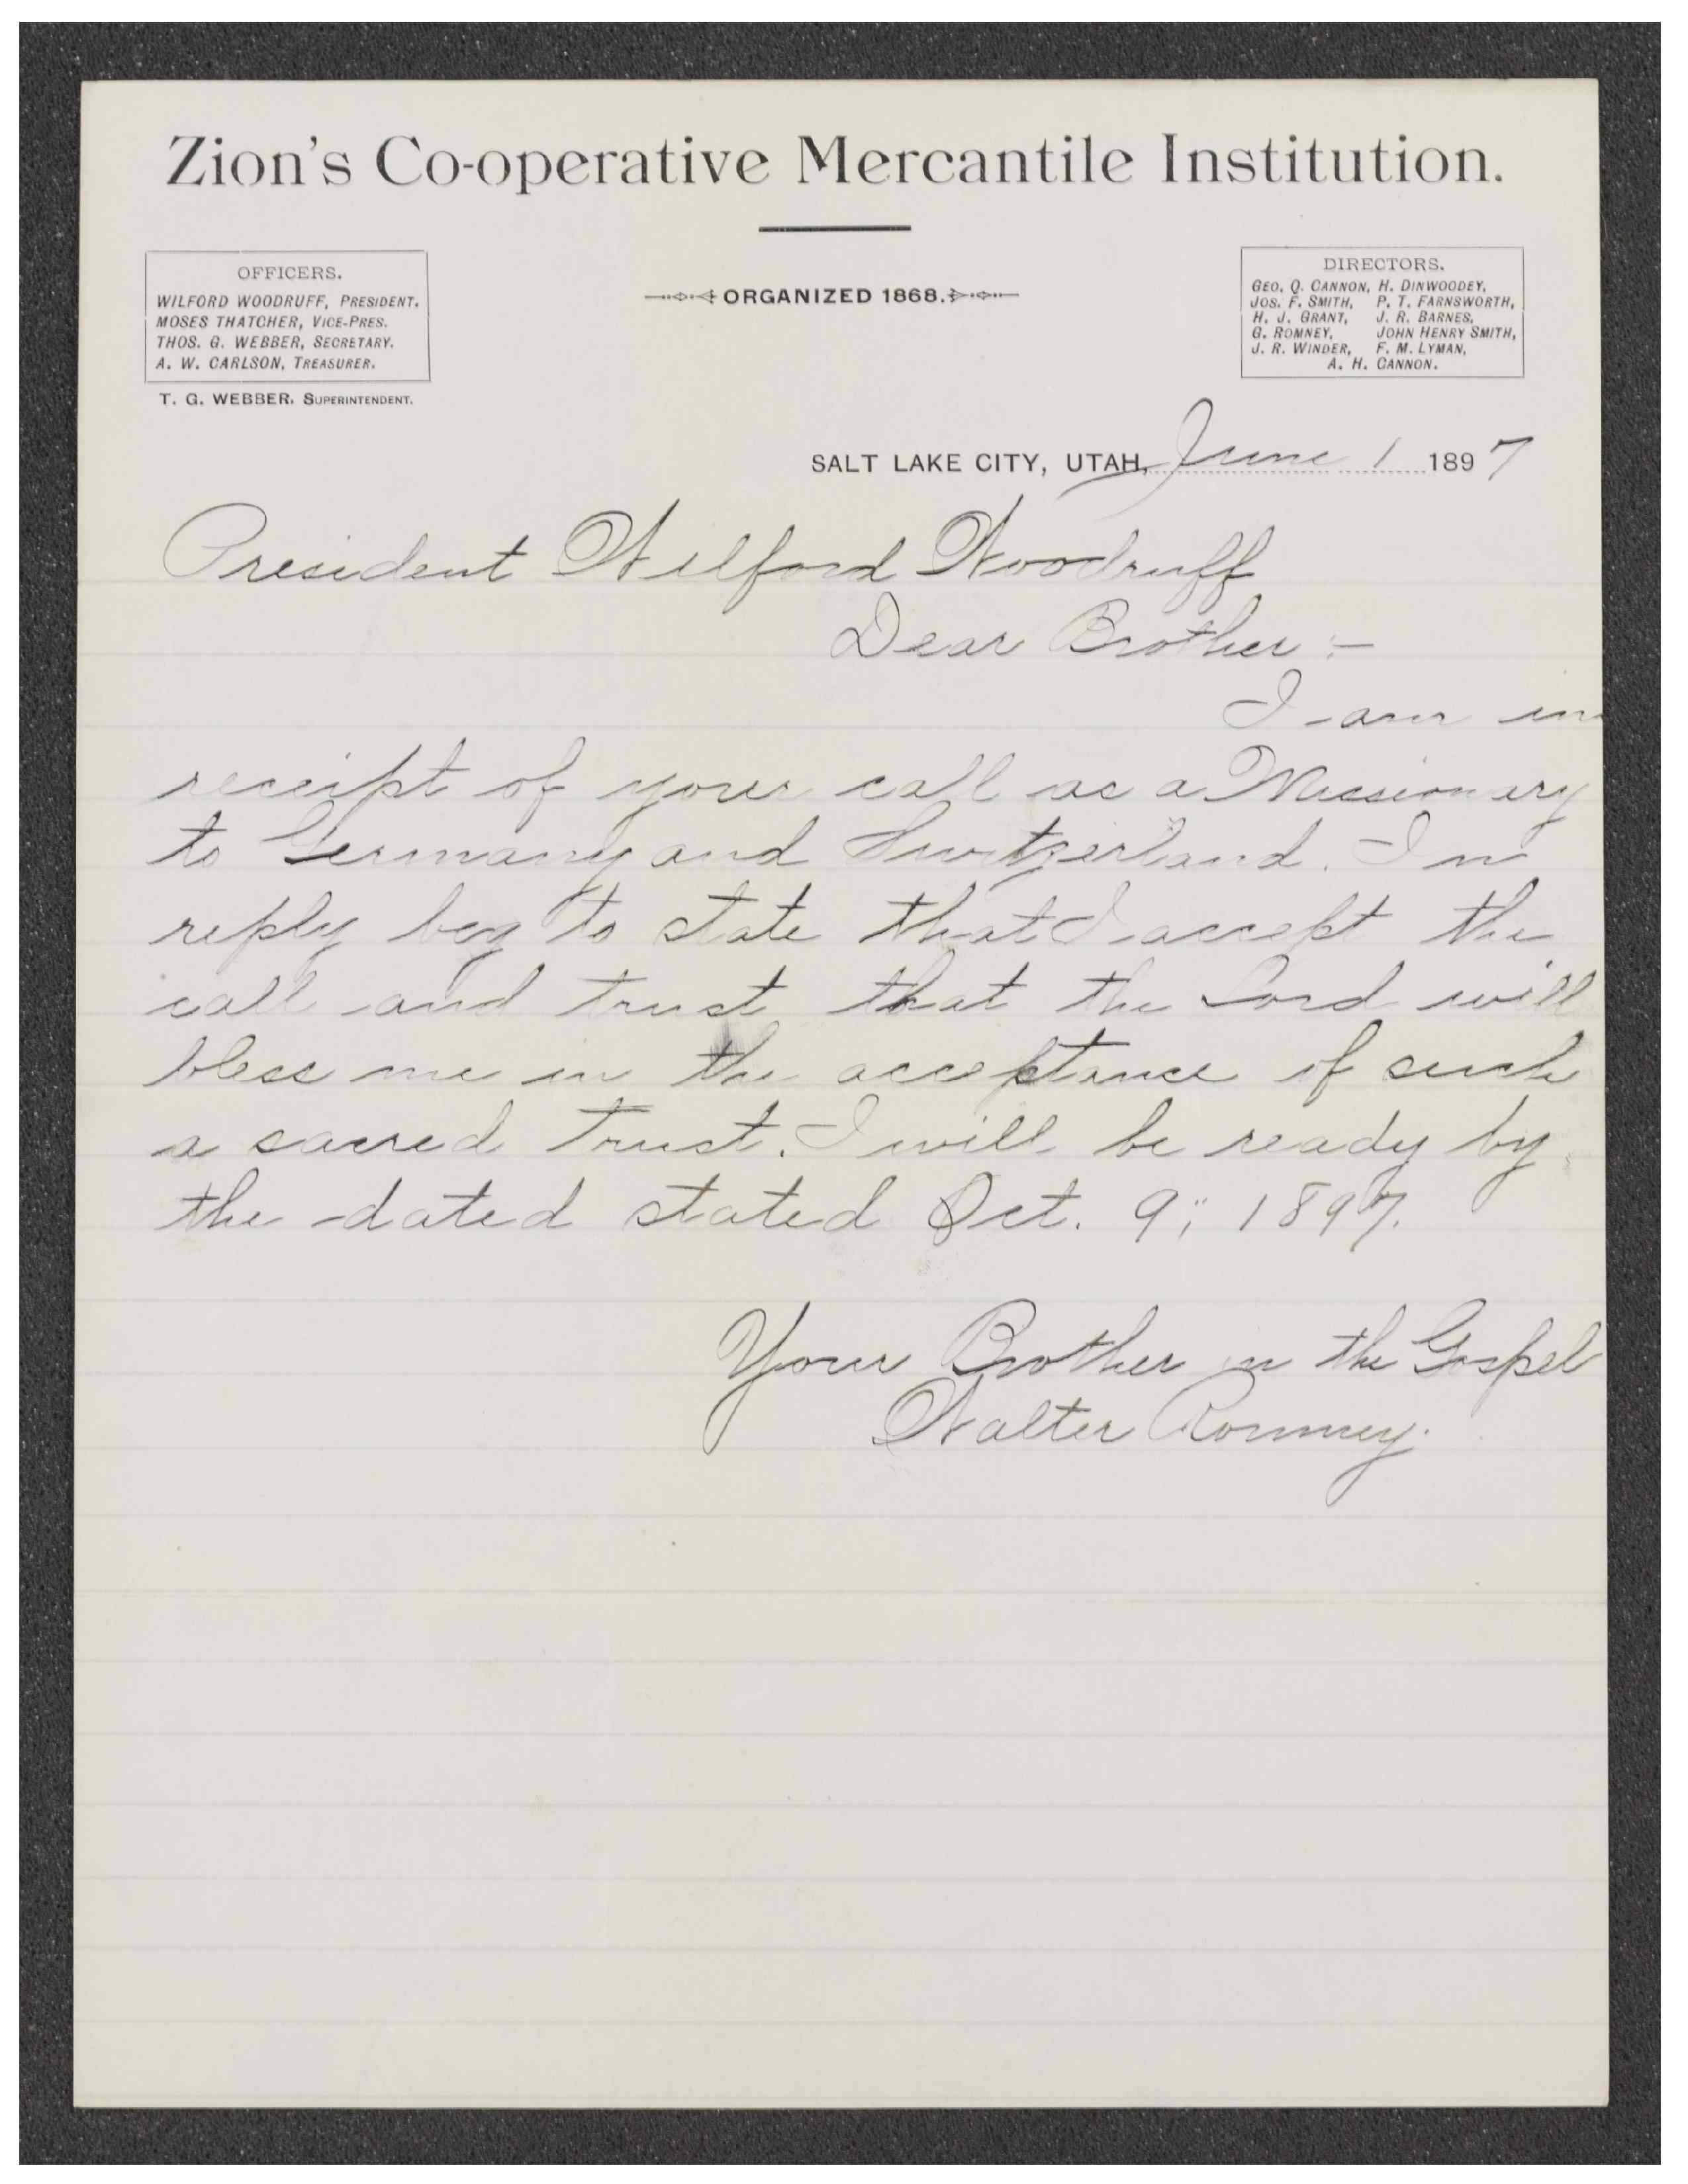 Zion's Co-operative Mercantile Institution.
OFFICERS.
WILFORD WOODRUFF, PRESIDENT.
MOSES THATCHER, VICE-PRES.
THOS. G. WEBBER, SECRETARY.
A. W. CARLSON, TREASURER.
T. G. WEBBER, SUPERINTENDENT.
ORGANIZED 1868.
DIRECTORS.
GEO. Q. CANNON, H. DINWOODEY,
JOS. F. SMITH, P. T. FARNSWORTH,
H. J. GRANT, J. R. BARNES,
G. ROMNEY, JOHN HENRY SMITH,
J. R. WINDER, F. M. LYMAN,
A. H. CANNON.
SALT LAKE CITY, UTAH, June 1 1897
President Wilford Woodruff
Dear Brother:-
I am in
receipt of your call as a Missionary
to Germany and Switzerland. In
reply beg to state that I accept the
call and trust that the Lord will
bless me in the acceptance of such
a sacred trust. I will be ready by
the dated stated Oct. 9", 1897.
Your Brother in the Gospel
Walter Romney.